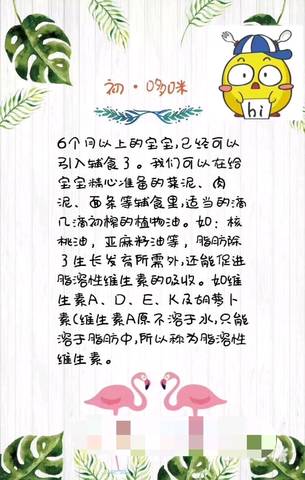 初·哆咪
hi
6个月以上的宝宝,已经可以
引入辅食了。我们可以在给
宝宝精心准备的菜泥、肉
泥、面条等辅食里,适当的滴
几滴初榨的植物油。如:核
桃油,亚麻籽油等,脂肪除
了生长发育所需外,还能促进
脂溶性维生素的吸收。如维
生素A、D、E、K及胡萝卜
素(维生素A原不溶于水,只能
溶于脂肪中,所以称为脂溶性
维生素。